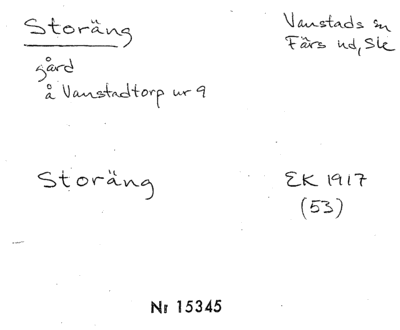 Storäng
Vanstads sn
Färs hd, Sk
gård
å Vanstadtorp nr 9
Storäng
EK 1917
(53)
Nr 15345